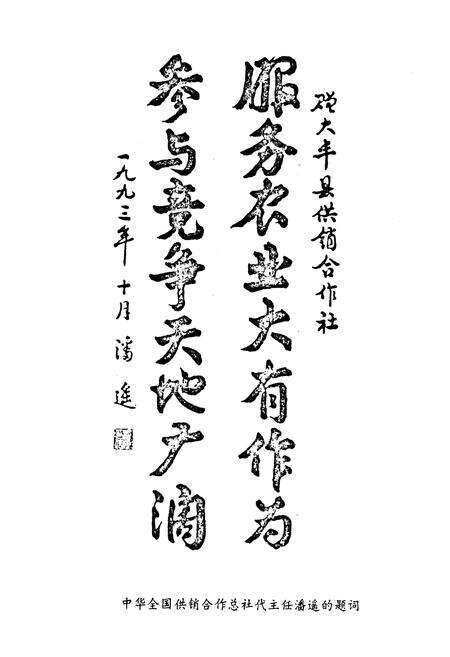 赠大丰县供销合作社
服务农业大有作为
参与竞争天地广阔
一九九三年十月 潘遥
中华全国供销合作总社代主任潘遥的题词